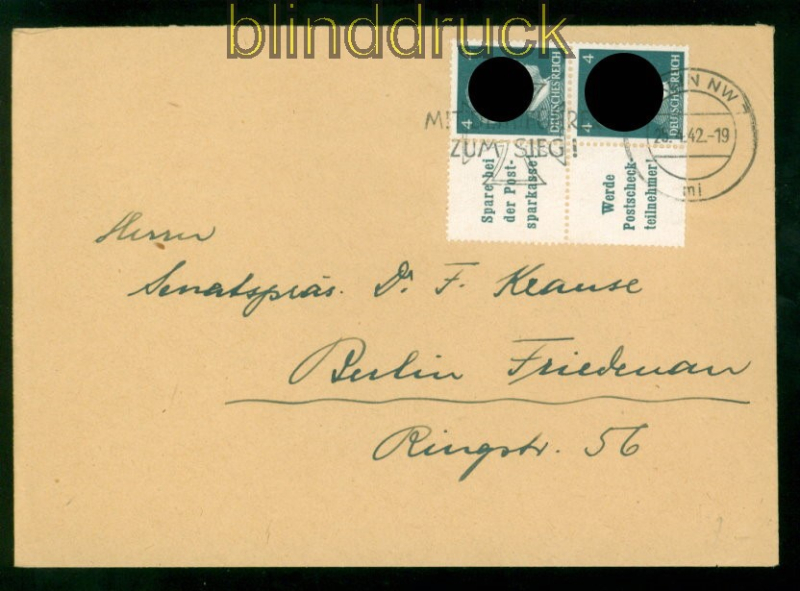 blinddruck
4 DEUTSCHES REICH 4
4 DEUTSCHES REICH 4
ZUM SIEG
N NW
42.-19
mi
Spare bei
der Post-
sparkasse
Werde
Postscheck-
teilnehmer!
Herrn
Senatspräs. Dr. F. Krause
Berlin Friedenau
Ringstr. 56